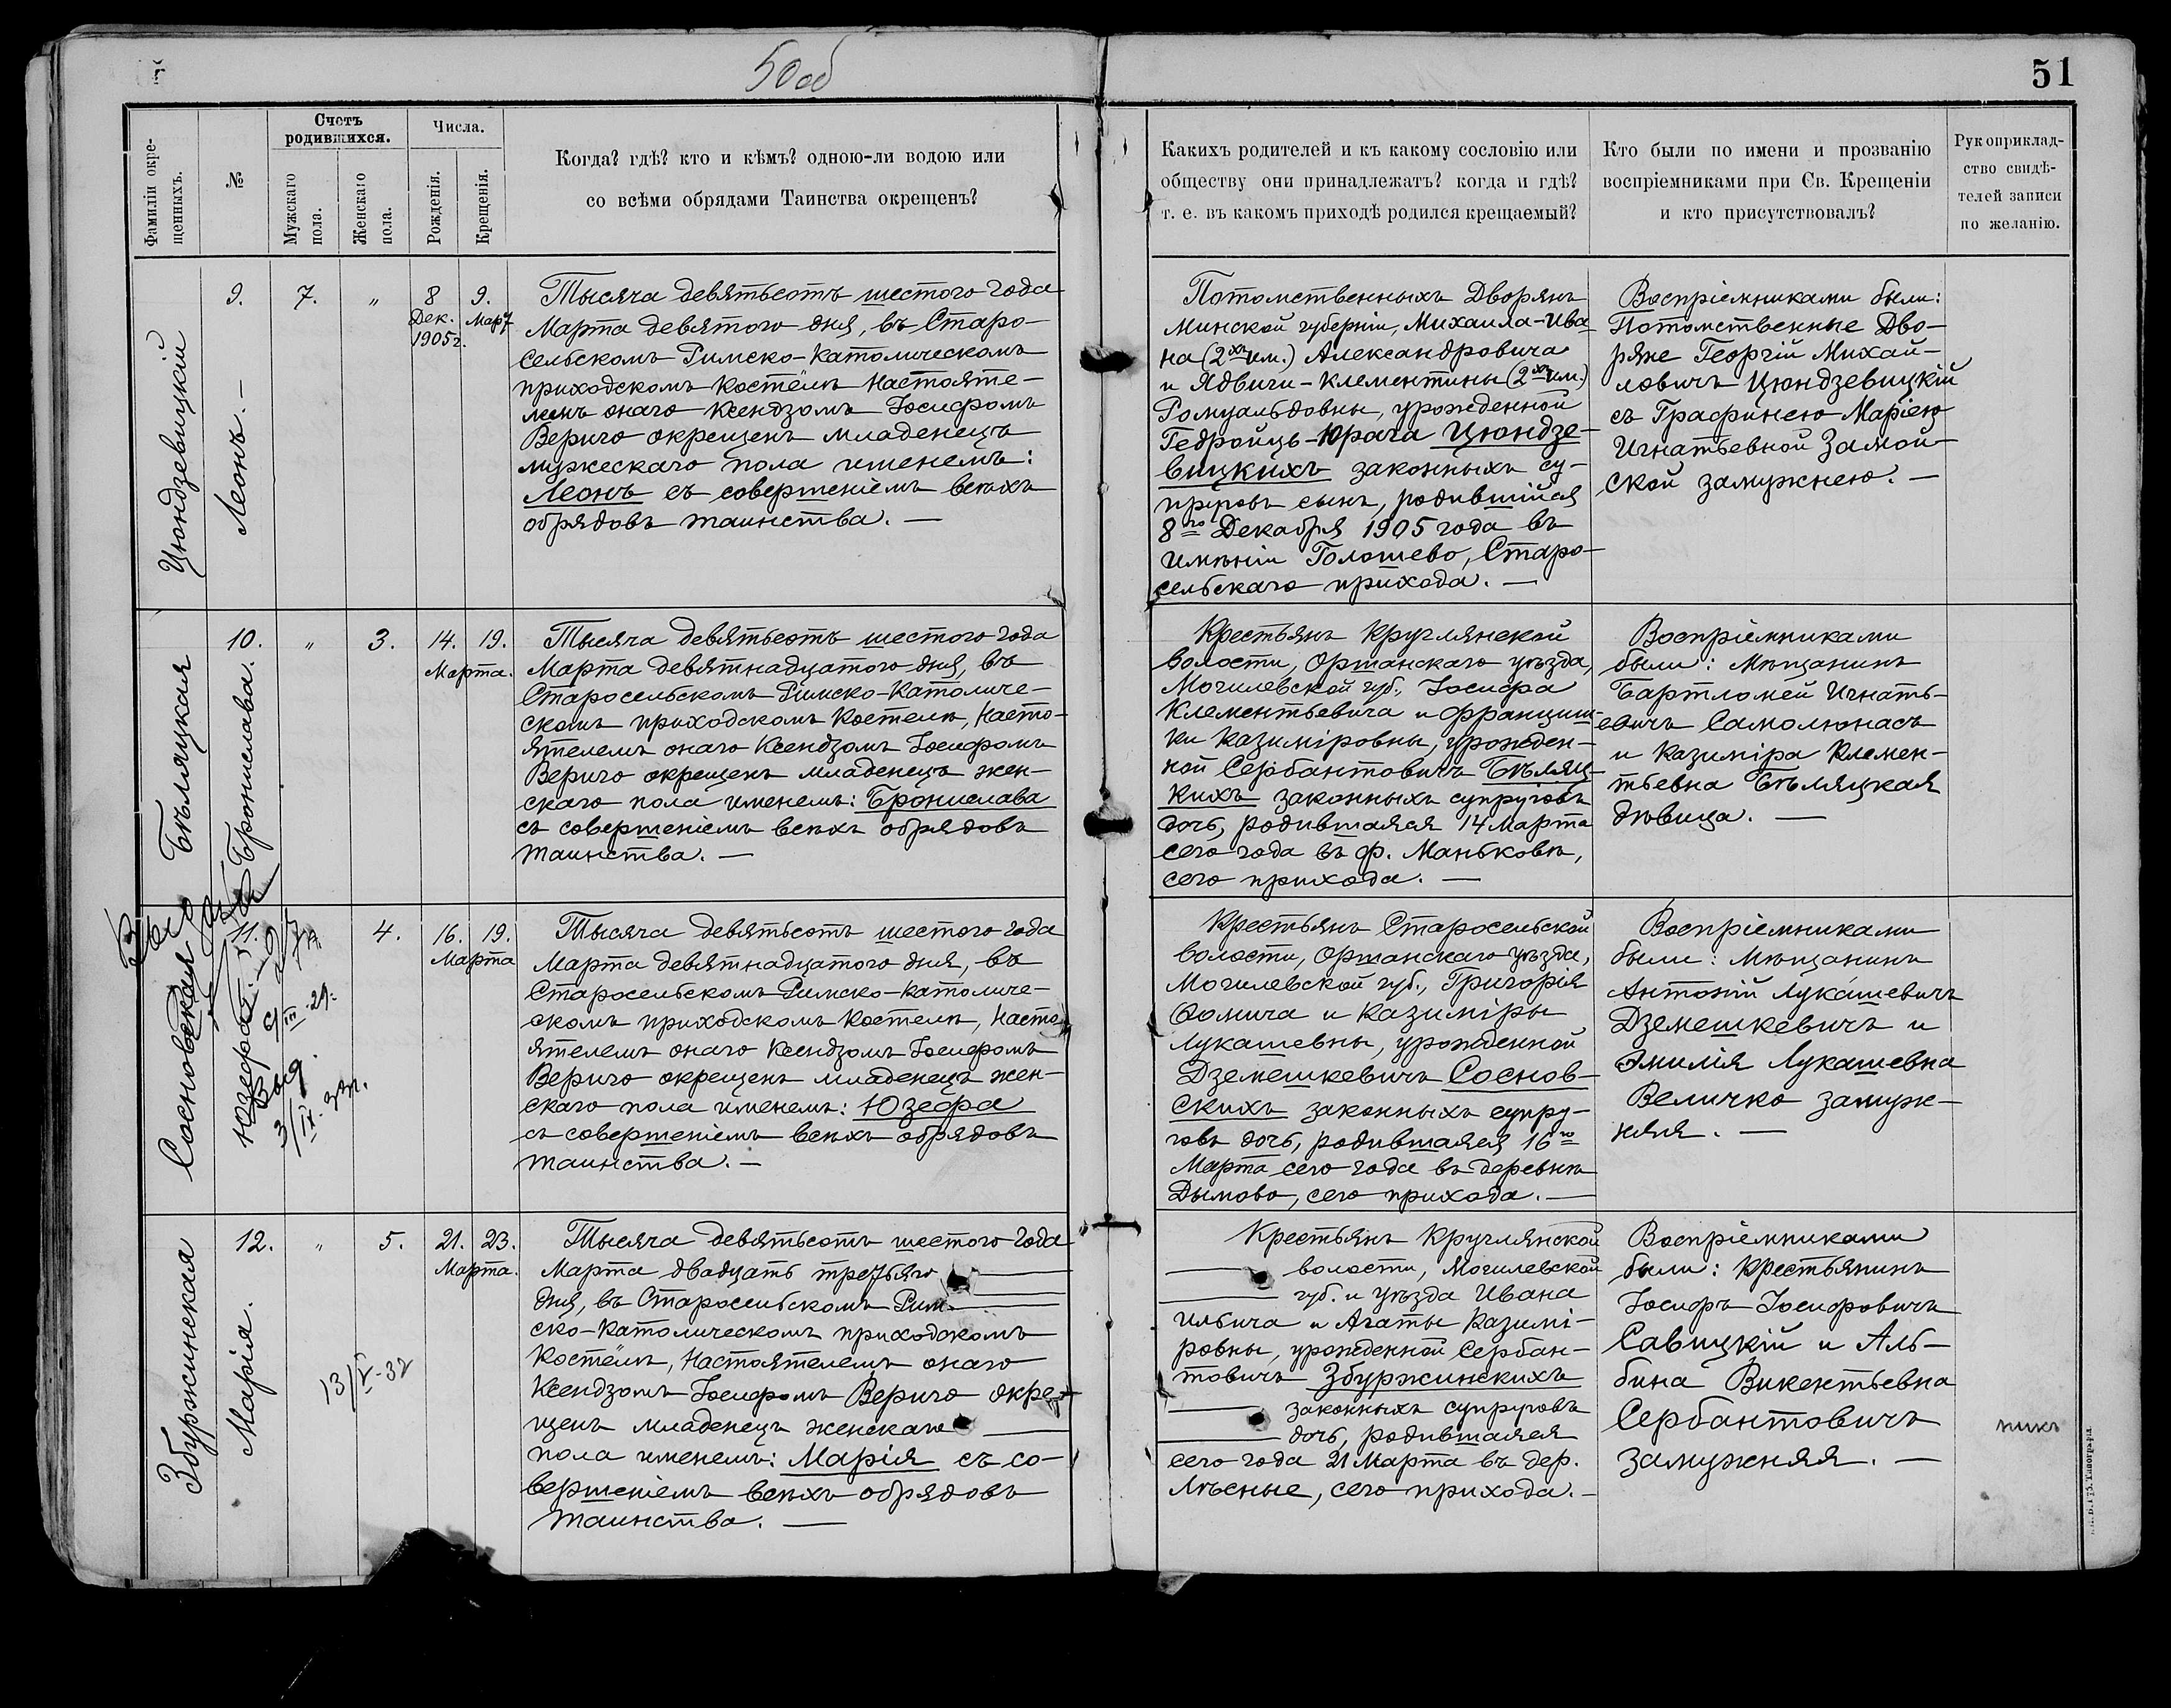 50об
51
Фамиліи окре-
щенныхъ.
№
Счетъ
родившихся.
Мужскаго
пола.
Женскаго
пола.
Числа.
Рожденія.
Крещенія.
Когда? гдѣ? кто и кѣмъ? одною-ли водою или
со всѣми обрядами Таинства окрещенъ?
Какихъ родителей и къ какому сословію или
обществу они принадлежатъ? когда и гдѣ?
т. е. въ какомъ приходѣ родился крещаемый?
Кто были по имени и прозванію
воспріемниками при Св. Крещеніи
и кто присутствовалъ?
Рукоприклад-
ство свидѣ-
телей записи
по желанію.
Цюндзевицкій
Леонъ. —
9.
7.
"
8
Дек.
1905г.
9.
Март
Тысяча девятьсотъ шестого года
Марта девятого дня, въ Старо-
сельскомъ Римско-Католическомъ
приходскомъ Костёлѣ Настояте-
лемъ онаго Ксендзомъ Іосифомъ
Вериго окрещенъ младенецъ
мужескаго пола именемъ:
Леонъ съ совершеніемъ всѣхъ
обрядовъ таинства. —
Потомственныхъ Дворянъ
Минской губерніи, Михаила-Ива-
на (2хъ им.) Александровича
и Ядвиги-Клементины (2хъ им.)
Ромуальдовны, урожденной
Гедройць-Юрага Цюндзе-
вицкихъ законныхъ су-
пруговъ сынъ, родившійся
8го Декабря 1905 года въ
имѣніи Голошево, Старо-
сельскаго прихода. —
Воспріемниками были:
Потомственные Дво-
ряне Георгій Михай-
ловичъ Цюндзевицкій
съ Графинею Маріею
Игнатьевной Замой-
ской замужнею. —
Бѣляцкая
Бронислава.
10.
"
3.
14. 19.
Марта.
Тысяча девятьсотъ шестого года
Марта девятнадцатого дня, въ
Старосельскомъ Римско-Католиче-
скомъ приходскомъ Костелѣ, Насто-
ятелемъ онаго Ксендзомъ Іосифомъ
Вериго окрещенъ младенецъ жен-
скаго пола именемъ: Бронислава
съ совершеніемъ всѣхъ обрядовъ
таинства. —
Крестьянъ Круглянской
волости, Оршанскаго уѣзда,
Могилевской губ., Іосифа
Клементьевича и Францишь-
ки Казиміровны, урожден-
ной Сербантовичъ Бѣляц-
кихъ законныхъ супруговъ
дочь, родившаяся 14 Марта
сего года въ ф. Маньковѣ,
сего прихода. —
Воспріемниками
были: Мѣщанинъ
Бартломей Игнать-
евичъ Самолюнасъ
и Казиміра Клемен-
тьевна Бѣляцкая
дѣвица. —
Сосновская
Юзефа. —
4.
16. 19.
Марта
Тысяча девятьсотъ шестого года
Марта девятнадцатого дня, въ
Старосельскомъ Римско-Католиче-
скомъ приходскомъ Костелѣ, Насто-
ятелемъ онаго Ксендзомъ Іосифомъ
Вериго окрещенъ младенецъ жен-
скаго пола именемъ: Юзефа
съ совершеніемъ всѣхъ обрядовъ
таинства. —
Крестьянъ Старосельской
волости, Оршанскаго уѣзда,
Могилевской губ., Григорія
Ѳомича и Казиміры
Лукашевны, урожденной
Дземешкевичъ Соснов-
скихъ законныхъ супру-
говъ дочь, родившаяся 16го
Марта сего года въ деревнѣ
Дымово, сего прихода. —
Воспріемниками
были: Мѣщанинъ
Антоній Лукашевичъ
Дземешкевичъ и
Эмилія Лукашевна
Величко замуж-
няя. —
Збуржинская
Марія.
12.
"
5.
21. 23.
Марта.
13/V-32
Тысяча девятьсотъ шестого года
Марта двадцать третьяго —
дня, въ Старосельскомъ Рим- —
ско-Католическомъ приходскомъ
Костёлѣ, Настоятелемъ онаго
Ксендзомъ Іосифомъ Вериго окре-
щенъ младенецъ женскаго —
пола именемъ: Марія съ со-
вершеніемъ всѣхъ обрядовъ
таинства. —
Крестьянъ Круглянской
— волости, Могилевской
— губ. и уѣзда Ивана
Ильича и Агаты Казимі-
ровны, урожденной Сербан-
товичъ Збуржинскихъ
— законныхъ супруговъ
— дочь, родившаяся
сего года 21 Марта въ дер.
Лѣсные, сего прихода. —
Воспріемниками
были: Крестьянинъ
Іосифъ Іосифовичъ
Савицкій и Аль-
бина Викентьевна
Сербантовичъ
замужняя. —